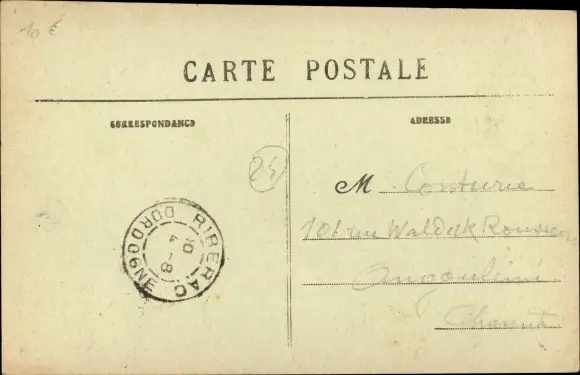 10 €
CARTE POSTALE
CORRESPONDANCE
ADRESSE
24
M Couturie
101 rue Waldeck Rousseau
Angoulême
Charente
RIBERAC
DORDOGNE
10
4 -8